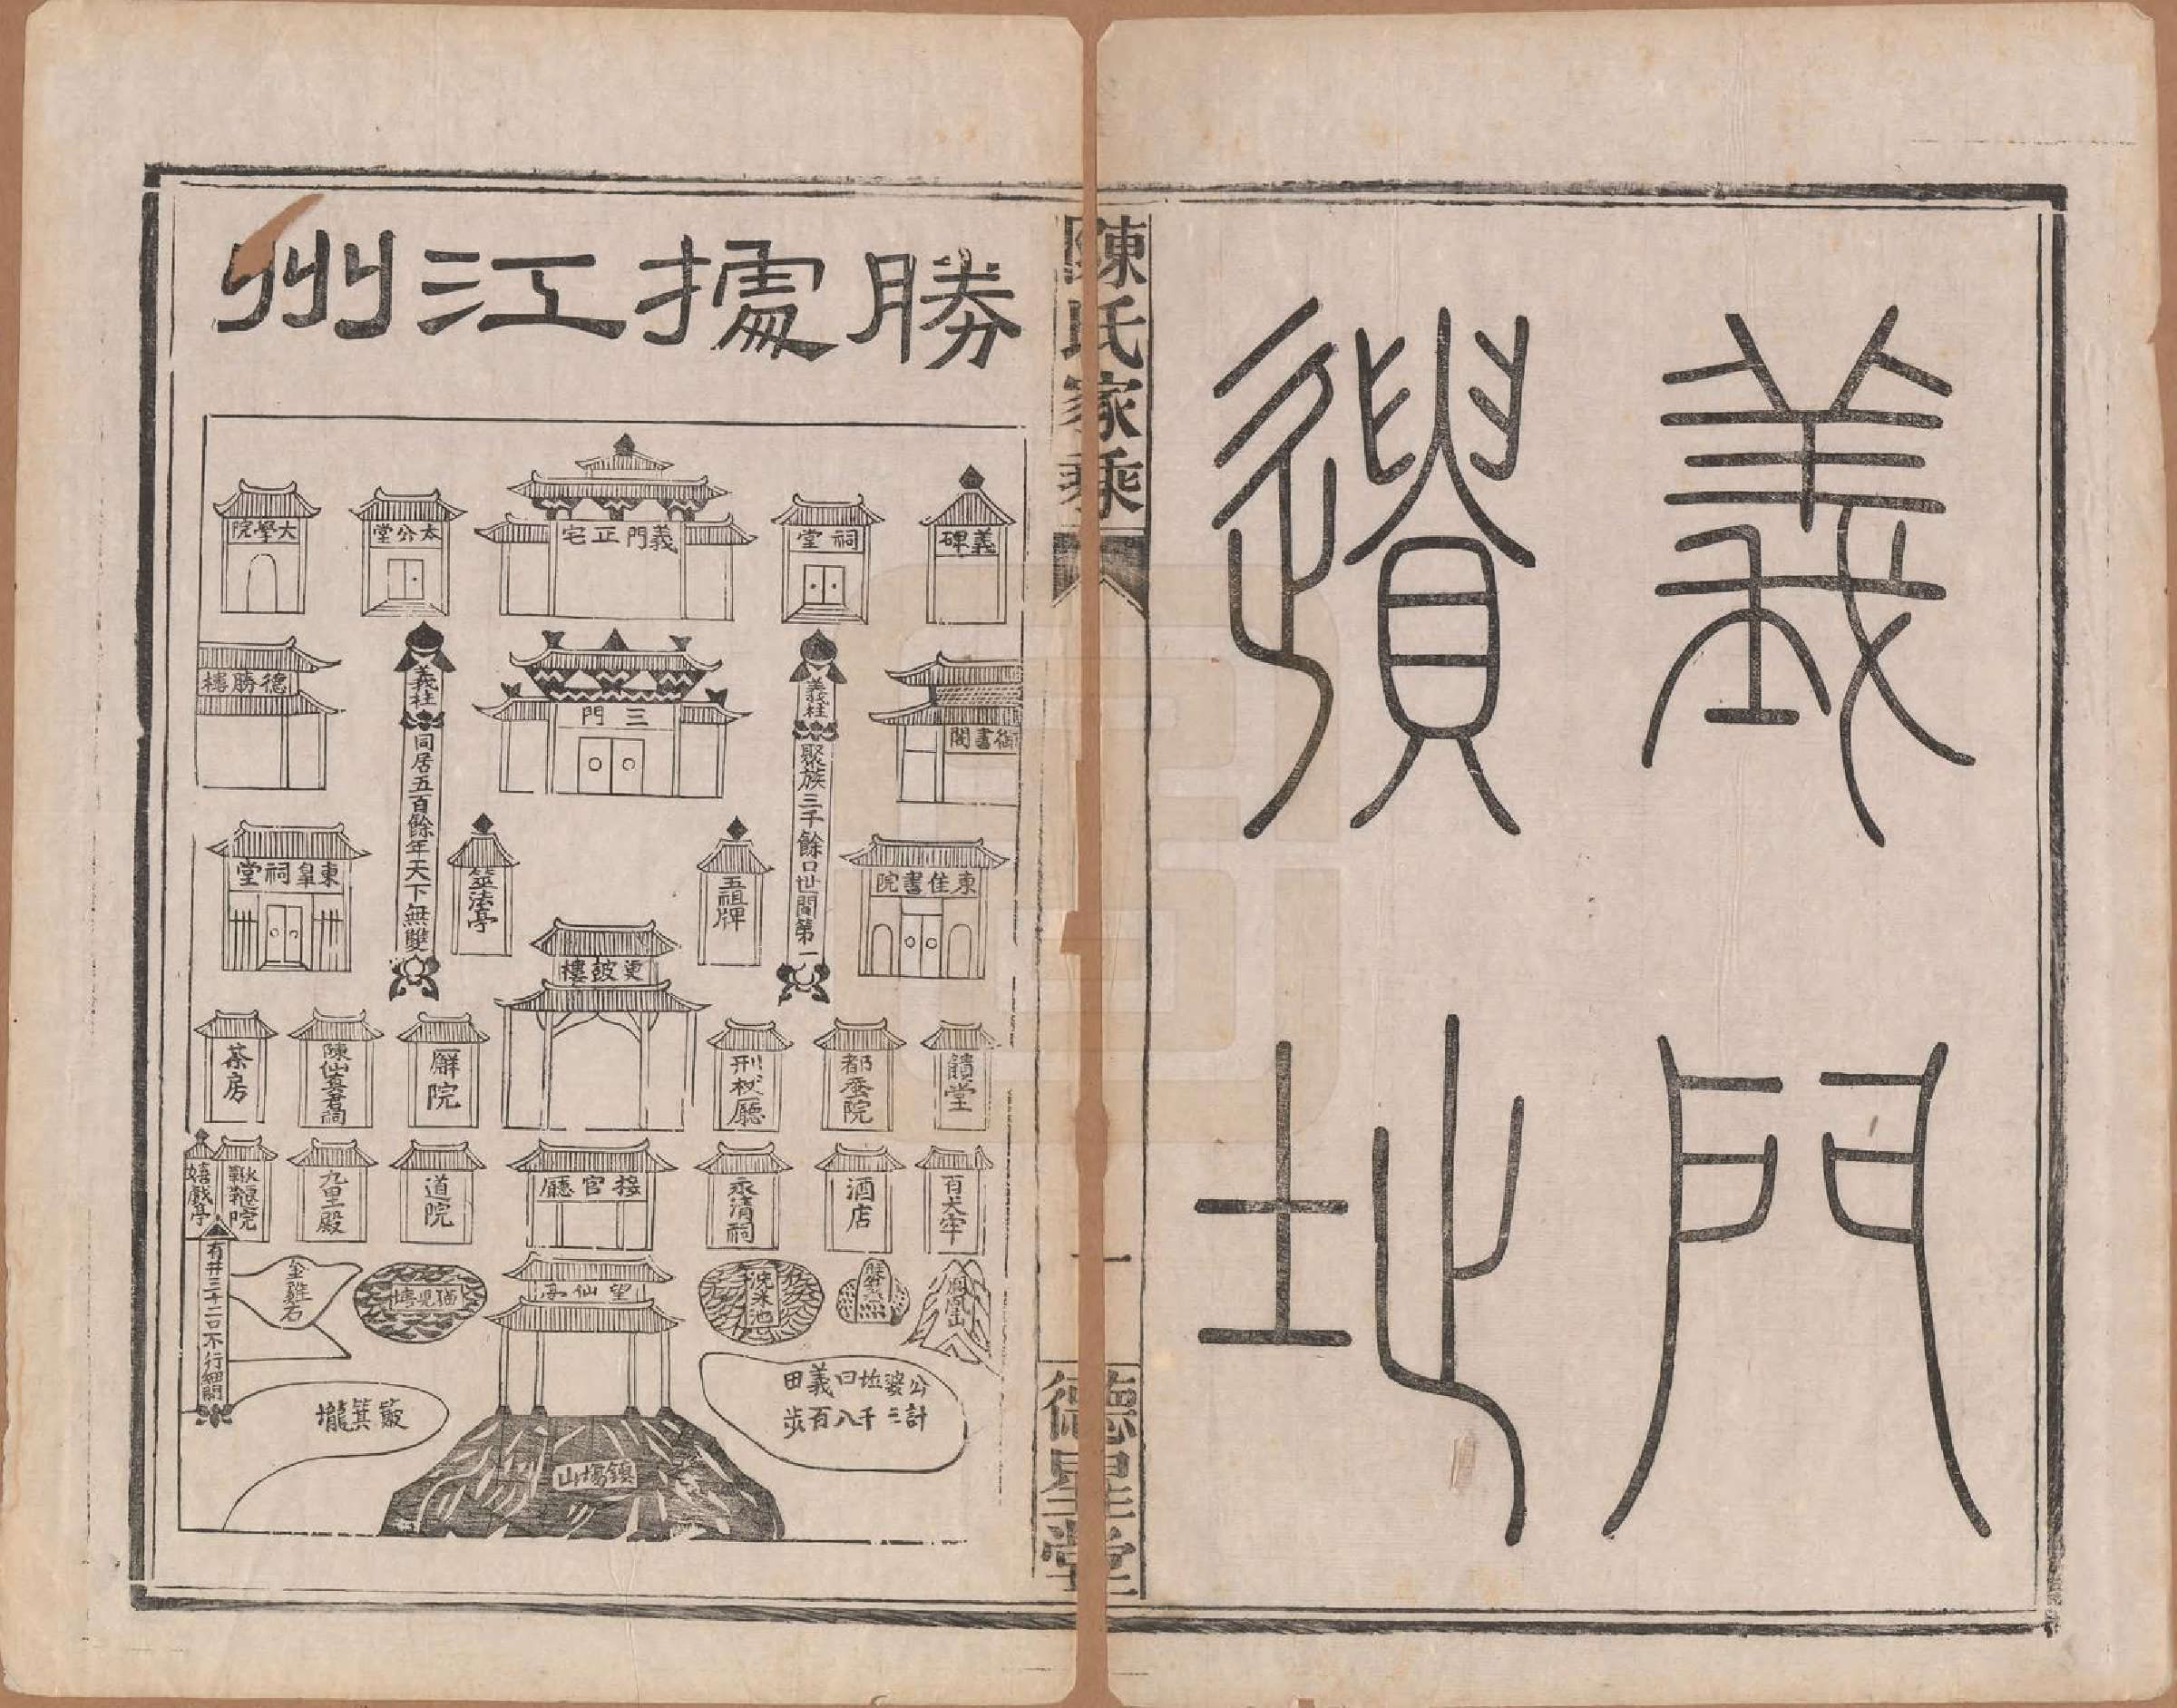 義門
遺址
陳氏家乘
一
德星堂
勝據江州
義碑
祠堂
義門正宅
太公堂
大學院
御書閣
義柱
聚族三千餘口世間第一
三門
義柱
同居五百餘年天下無雙
德勝樓
東佳書院
五祖牌
筮法亭
東皇祠堂
更鼓樓
饋堂
都蚕院
刑杖廳
廨院
陳仙真君祠
茶房
百犬牢
酒店
永清祠
接官廳
道院
九里殿
鞦韆院
嬉戲亭
鳳凰山
洗米池
望仙亭
猫児塘
金雞石
有井三十二口不行細開
公婆坵曰義田
計三千八百步
簸箕壠
鎮塲山